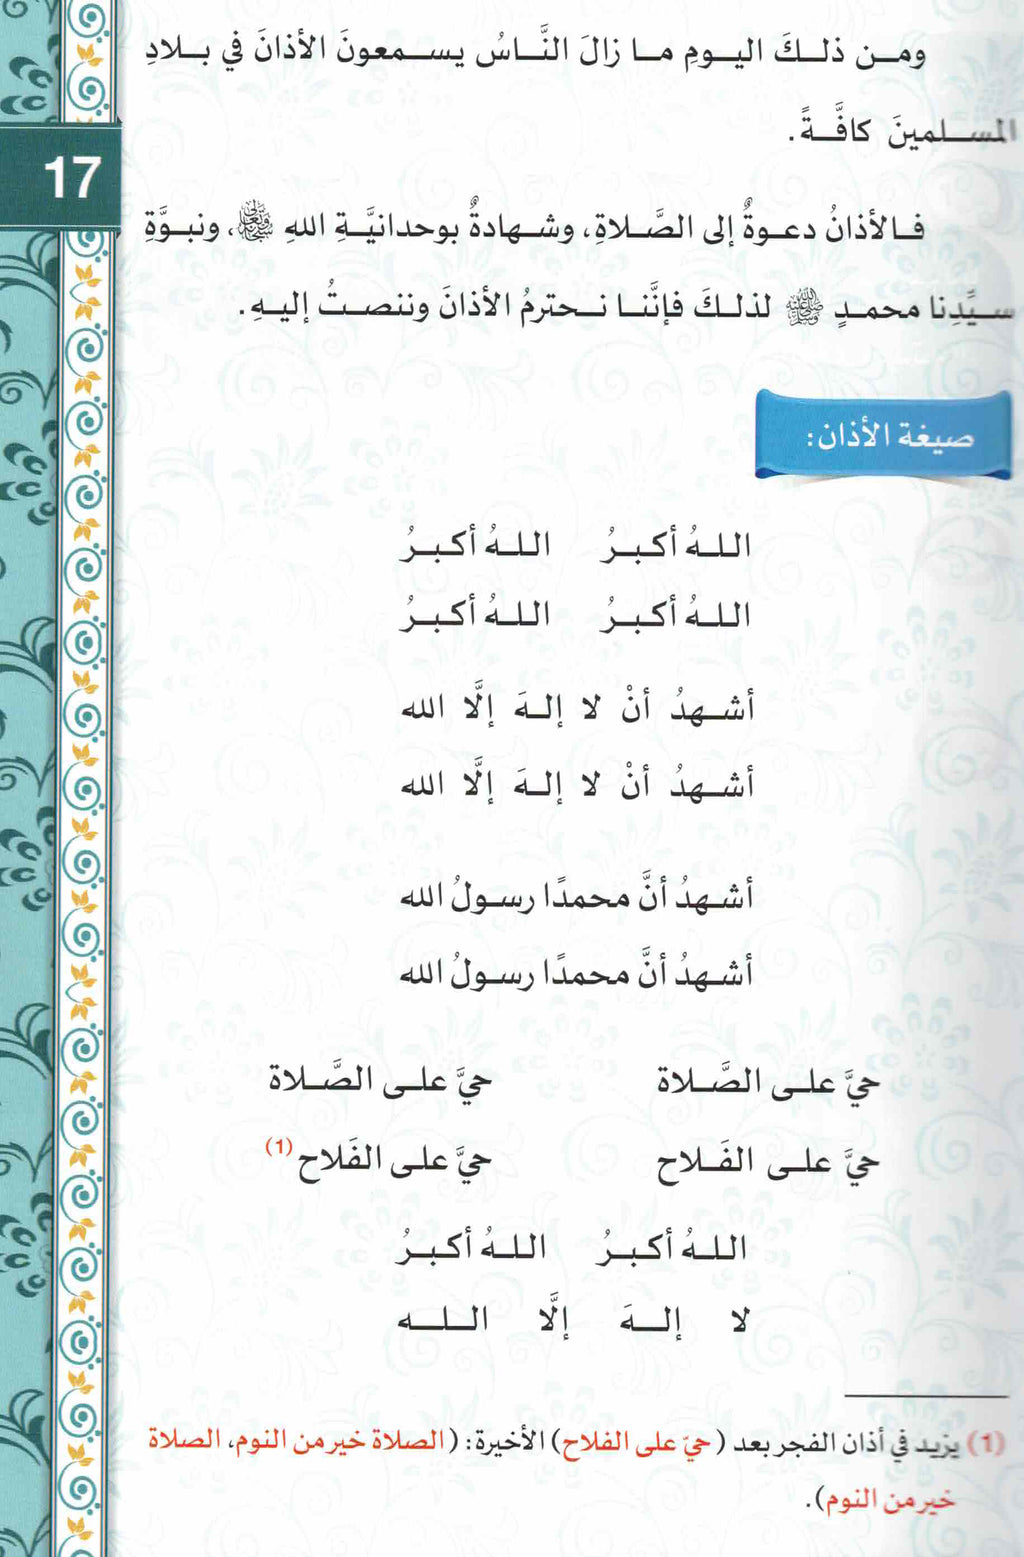 ومن ذلكَ اليومِ ما زالَ النَّاسُ يسمعونَ الأذانَ في بلادِ
المسلمينَ كافَّةً.
17
فالأذانُ دعوةٌ إلى الصَّلاةِ، وشهادةٌ بوحدانيَّةِ اللهِ ﷾، ونبوَّةِ
سيِّدِنا محمدٍ ﷺ لذلكَ فإنَّنا نحترمُ الأذانَ وننصتُ إليهِ.
صيغة الأذان:
اللهُ أكبرُ اللهُ أكبرُ
اللهُ أكبرُ اللهُ أكبرُ
أشهدُ أنْ لا إلهَ إلَّا الله
أشهدُ أنْ لا إلهَ إلَّا الله
أشهدُ أنَّ محمدًا رسولُ الله
أشهدُ أنَّ محمدًا رسولُ الله
حيَّ على الصَّلاة حيَّ على الصَّلاة
حيَّ على الفَلاح حيَّ على الفَلاح (1)
اللهُ أكبرُ اللهُ أكبرُ
لا إلهَ إلَّا الله
(1) يزيد في أذان الفجر بعد (حيّ على الفلاح) الأخيرة: (الصلاة خير من النوم، الصلاة
خير من النوم).